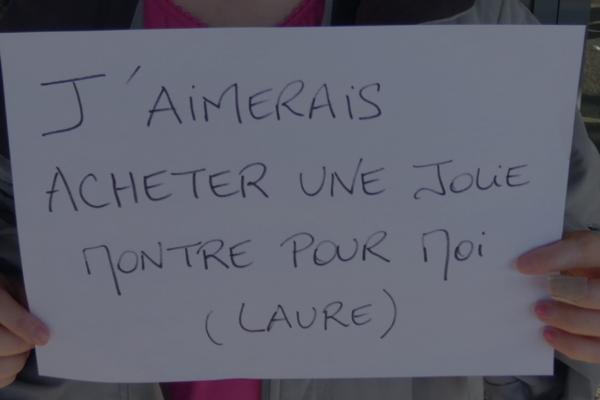 J'AiMERAiS
ACHETER UNE JOLiE
MONTRE POUR MOi
(LAURE)